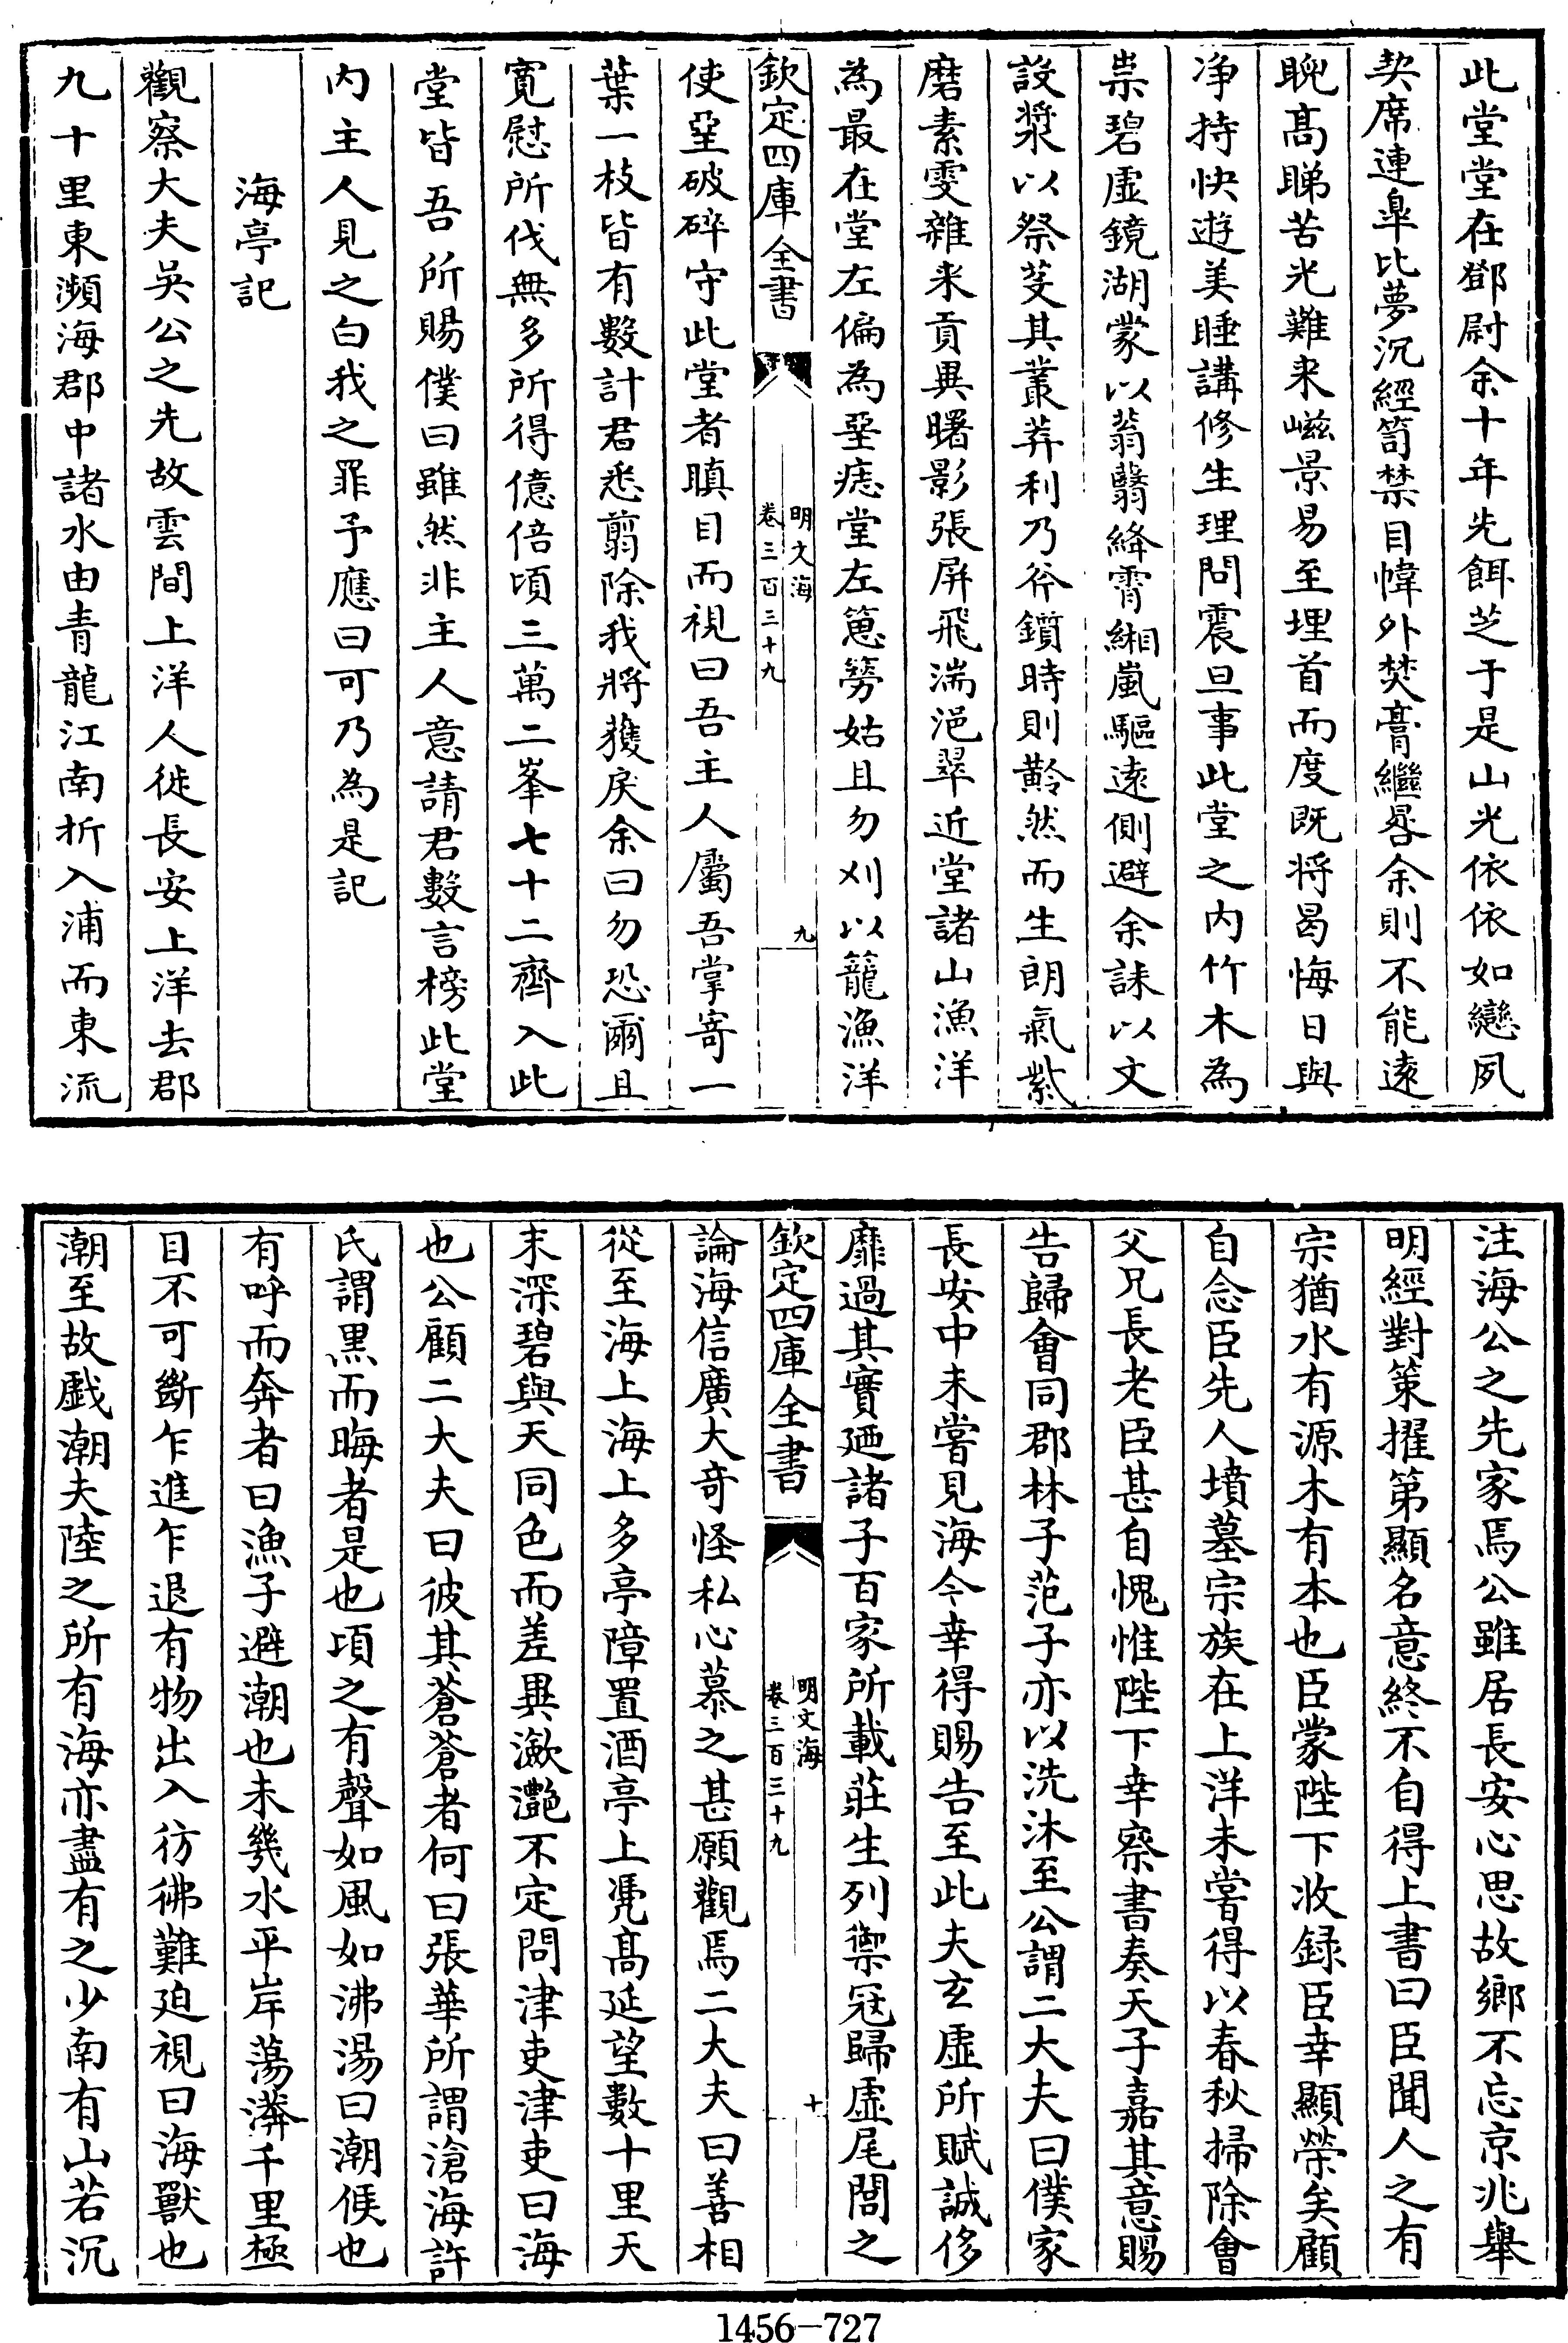 此堂堂在鄧尉余十年先餌芝于是山光依依如戀夙
契席連臯比夢沉經笥禁目幃外焚膏繼晷余則不能遠
睨髙睇苦光難来嵫景易至埋首而度既将曷悔日與
净持快遊美睡講修生理問震旦事此堂之内竹木為
祟碧虛鏡湖蒙以蓊翳絳霄緗嵐驅逺側避余誄以文
設漿以祭芟其叢莽利乃斧鑕時則黅然而生朗氣紫
磨素雯雜来貢異曙影張屏飛湍浥翠近堂諸山漁洋
為最在堂左偏為堊痣堂左窻篣姑且勿刈以籠漁洋
欽定四庫全書
明文海
卷三百三十九
九
使堊破碎守此堂者瞋目而視曰吾主人屬吾掌寄一
葉一枝皆有數計君悉翦除我將獲戾余曰勿恐爾且
寛慰所伐無多所得億倍頃三萬二峯七十二齊入此
堂皆吾所賜僕曰雖然非主人意請君數言榜此堂
内主人見之白我之罪予應曰可乃為是記
海亭記
觀察大夫吳公之先故雲間上洋人徙長安上洋去郡
九十里東瀕海郡中諸水由青龍江南折入浦而東流
注海公之先家焉公雖居長安心思故鄉不忘京兆舉
明經對策擢第顯名意終不自得上書曰臣聞人之有
宗猶水有源木有本也臣蒙陛下收録臣幸顯榮矣顧
自念臣先人墳墓宗族在上洋未嘗得以春秋掃除會
父兄長老臣甚自愧惟陛下幸察書奏天子嘉其意賜
告歸會同郡林子范子亦以洗沐至公謂二大夫曰僕家
長安中未嘗見海今幸得賜告至此夫玄虛所賦誠侈
靡過其實廼諸子百家所載莊生列禦冦歸虛尾閭之
欽定四庫全書
明文海
卷三百三十九
十
論海信廣大奇怪私心慕之甚願觀焉二大夫曰善相
從至海上海上多亭障置酒亭上凭髙延望數十里天
末深碧與天同色而差異瀲灧不定問津吏津吏曰海
也公顧二大夫曰彼其蒼蒼者何曰張華所謂滄海許
氏謂黑而晦者是也頃之有聲如風如沸湯曰潮𠊱也
有呼而奔者曰漁子避潮也未㡬水平岸蕩漭千里極
目不可斷乍進乍退有物出入彷彿難廹視曰海獸也
潮至故戲潮夫陸之所有海亦盡有之少南有山若沉
1456-727